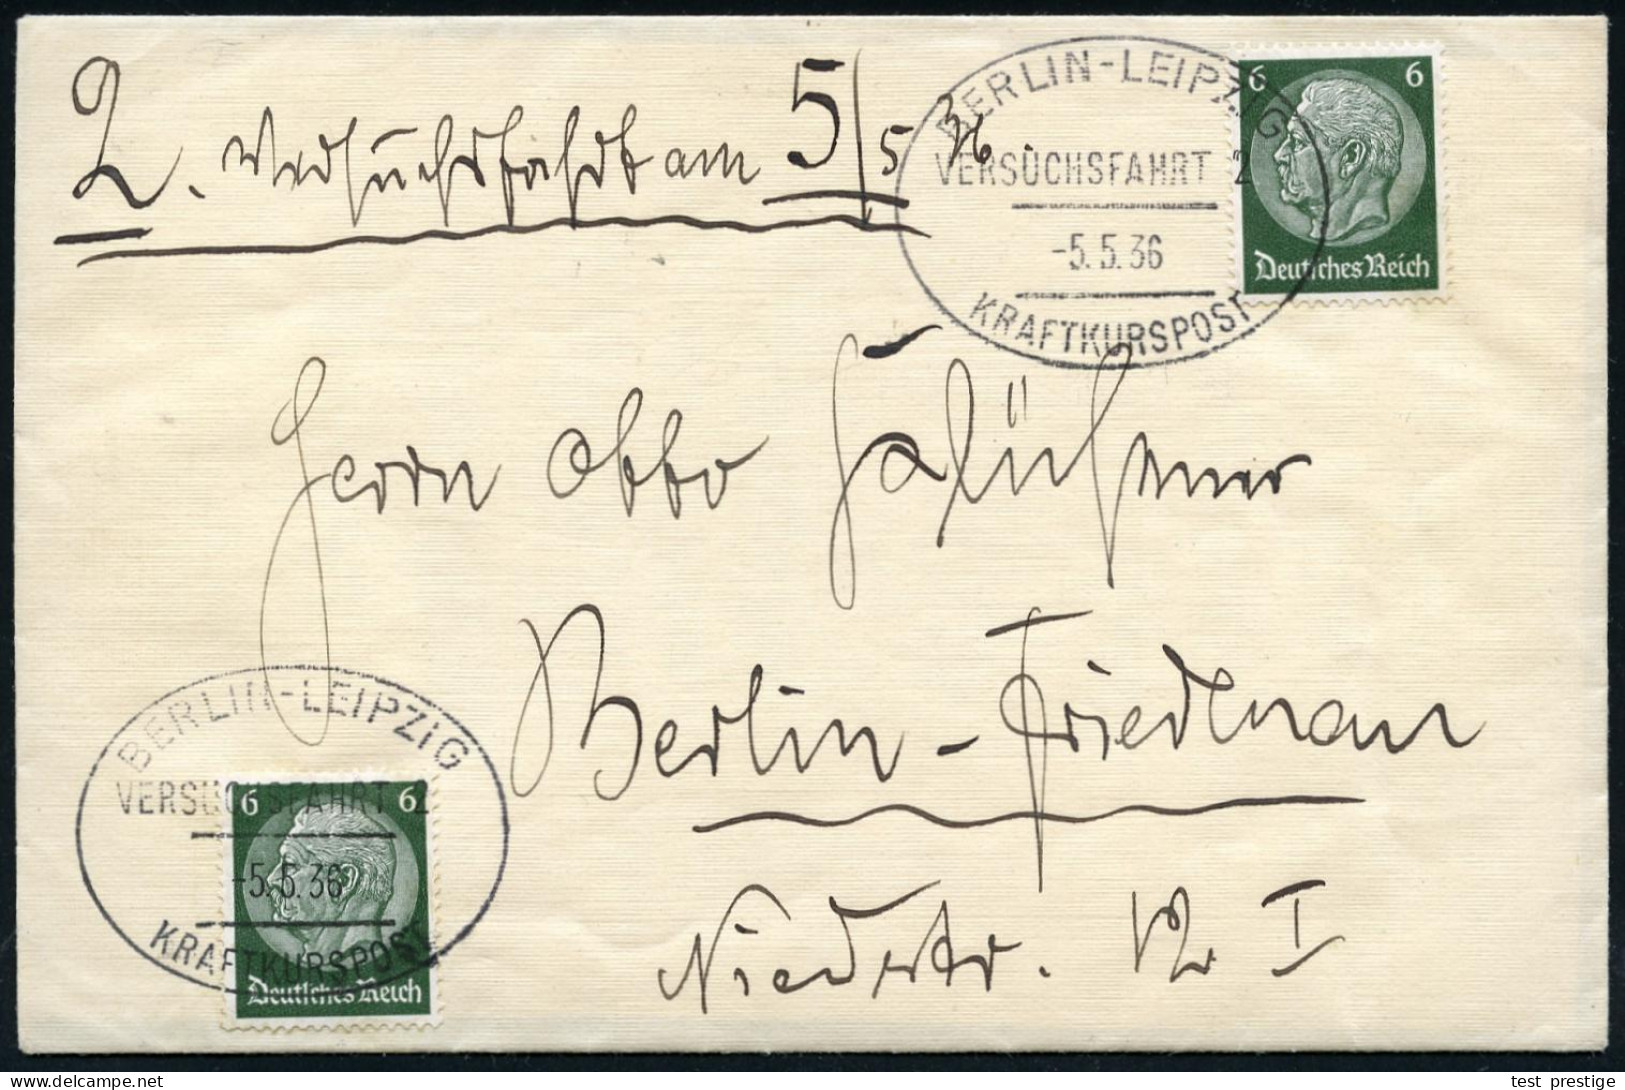 2. Versuchsfahrt am 5/5 36.
BERLIN-LEIPZIG
VERSUCHSFAHRT 2
-5.5.36
KRAFTKURSPOST
6 6
Deutsches Reich
Herrn Otto
Berlin-Friedenau
Nr I
BERLIN-LEIPZIG
VERSUCHSFAHRT 2
-5.5.36
KRAFTKURSPOST
6 6
Deutsches Reich
test prestige